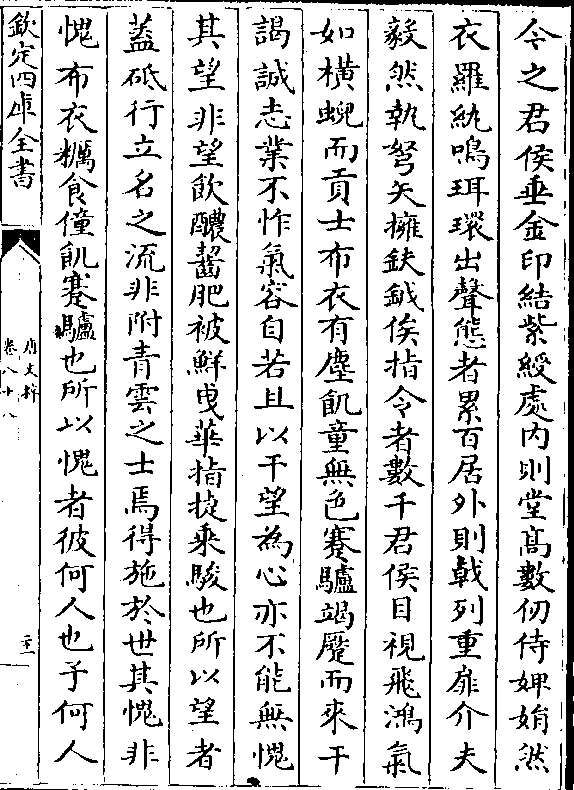 今之君侯垂金印結紫綬處内則堂髙數仞侍婢娋然
衣羅紈鳴珥環出聲態者累百居外則㦸列重扉介夫
毅然執弩矢擁鈇鉞俟指令者數千君侯目視飛鴻氣
如横蜺而貢士布衣有塵飢童無色蹇驢竭蹷而來干
謁誠志業不怍氣容自若且以干望為心亦不能無愧
其望非望飲醲齧肥被鮮曳華指揮乘駿也所以望者
蓋砥行立名之流非附青雲之士焉得施於世其愧非
愧布衣糲食僮飢蹇驢也所以愧者彼何人也予何人
欽定四庫全書
唐文粹
卷八十八